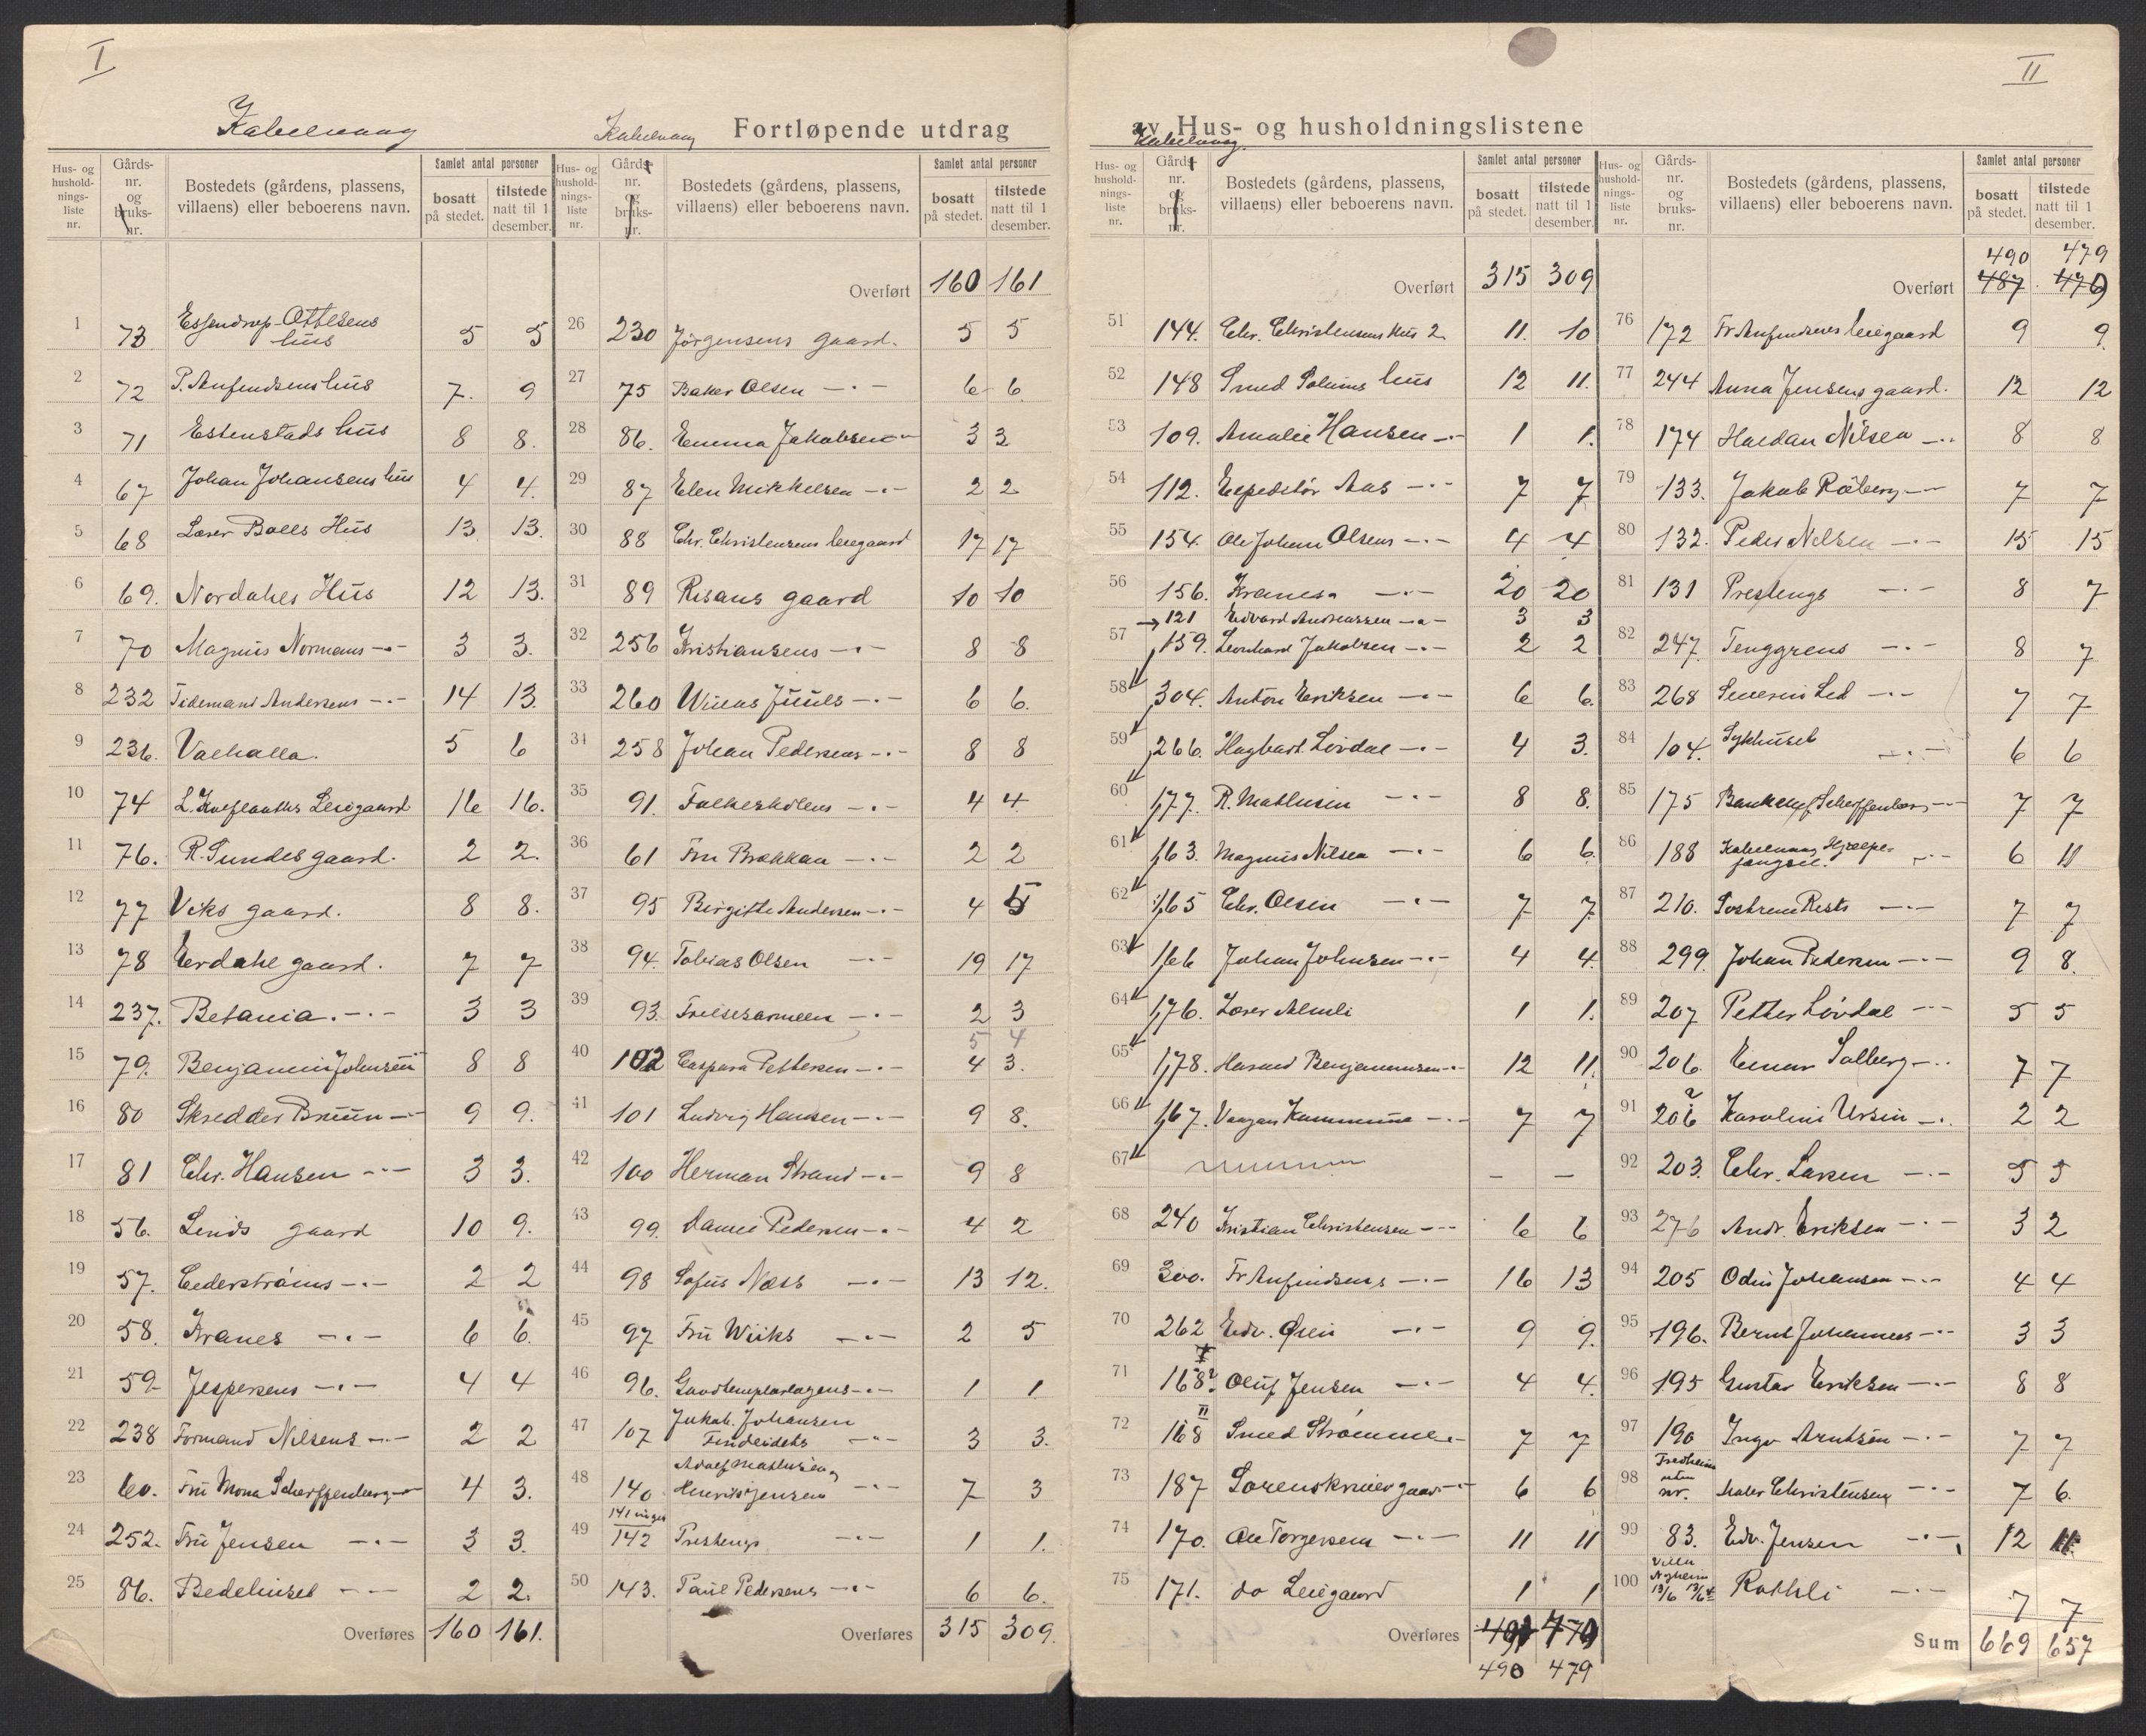 I
II
Kabelvaag
Kabelvaag
Fortløpende utdrag
av Hus- og husholdningslistene
Kabelvaag.
Hus- og husholdnings-liste nr. Gårds-nr. og bruks-nr. Bostedets (gårdens, plassens, villaens) eller beboerens navn. Samlet antal personer bosatt på stedet. tilstede natt til 1 desember.
1 73 Essendrop-Ottesens hus 5 5
2 72 P. Anfindsens hus 7. 9
3 71 Estenstads hus 8 8.
4 67 Johan Johansens hus 4 4.
5 68 Lærer Bolls Hus 13. 13.
6 69. Nordahls Hus 12 13.
7 70 Magnus Normans -"- 3 3.
8 232 Tidemand Andersens -"- 14 13.
9 236. Valhalla. 5 6
10 74 L. Kaflanths Leiegaard 16 16.
11 76. R. Sundes gaard. 2 2.
12 77 Viks gaard. 8 8.
13 78 Erdahl gaard. 7 7
14 237. Betania. -"- 3 3
15 79. Benjamin Johnsen 8 8
16 80 Skredder Bruun -"- 9 9.
17 81 Chr. Hansen -"- 3 3.
18 56. Linds gaard 10 9.
19 57. Cederstrøms -"- 2 2
20 58. Kranes -"- 6 6.
21 59 Jespersens -"- 4 4
22 238 Formand Nilsens -"- 2 2
23 60. Fru Mona Scheffenberg -"- 4 3.
24 252. Fru Jensen -"- 3 3.
25 86. Bedehuset -"- 2 2.
Overføres 160 161.
Hus- og husholdnings-liste nr. Gårds-nr. og bruks-nr. Bostedets (gårdens, plassens, villaens) eller beboerens navn. Samlet antal personer bosatt på stedet. tilstede natt til 1 desember.
Overført 160 161
26 230 Jørgensens gaard. 5 5
27 75 Baker Olsen -"- 6 6.
28 86. Emma Jakobsen -"- 3 3
29 87 Elen Mikkelsen -"- 2 2
30 88 Chr. Christensens leiegaard 17 17
31 89 Risans gaard 10 10
32 256 Kristiansens -"- 8 8
33 260 Juuls -"- 6 6.
34 258 Johan Pedersens -"- 8 8
35 91. -"- 4 4.
36 61 Fru Brækkan -"- 2 2
37 95 Birgitte Andersen -"- 4 5
38 94. Tobias Olsen -"- 19 17
39 93. Frelsesarmeen -"- 2 3
5 4
40 102 Caspara Pettersen -"- 4 3.
41 101 Ludvig Hansen -"- 9 8.
42 100 Herman Strand -"- 9 8
43 99. Daniel Pedersen -"- 4 2
44 98 Sofus Næss -"- 13 12.
45 97 Fru Wiiks -"- 2 5
46 96. Goodtemplarlogens -"- 1 1
47 107 Jakob Johansen Findeidets -"- 3 3.
48 140 Adolf Mathisen, Henrik Jensen -"- 7 3
49 141 142 Prestengs -"- 1 1.
50 143. Paul Pedersens -"- 6 6.
Overføres 315 309.
Hus- og husholdnings-liste nr. Gårds-nr. og bruks-nr. Bostedets (gårdens, plassens, villaens) eller beboerens navn. Samlet antal personer bosatt på stedet. tilstede natt til 1 desember.
Overført 315 309
51 144. Chr. Christensens Hus 2 11. 10
52 148 Smed Solums hus 12 11.
53 109. Amalie Hansen -"- 1 1.
54 112. Expeditør Aas -"- 7 7
55 154. Ole Johan Olsens -"- 4 4
56 156. Kransa -"- 20 20
121 Edvard Andreassen -"- 3 3
57 159. Leonhard Jakobsen -"- 2 2
58 304. Anton Eriksen -"- 6 6.
59 266. Hagbart Løvdal -"- 4 3.
60 177. R. Mathisen -"- 8 8.
61 163. Magnus Nilsen -"- 6 6.
62 165 Chr. Olsen -"- 7 7
63 166 Johan Johnsen -"- 4 4.
64 176. Lærer Almli 1 1.
65 178. Harald Benjaminsen -"- 12 11.
66 167. Vaagan Kommune -"- 7 7
67 - -
68 240 Kristian Christensen -"- 6 6
69 300. Fr Anfindsens -"- 16 13
70 262 Edv. Øien -"- 9 9.
71 168 I Oluf Jensen -"- 4 4.
72 168 II Smed Strømme -"- 7 7
73 187 Sorenskriver gaard -"- 6 6
74 170. Ole Torgersens -"- 11 11
75 171. do Leiegaard 1 1
Overføres 491 479
490 479
Hus- og husholdnings-liste nr. Gårds-nr. og bruks-nr. Bostedets (gårdens, plassens, villaens) eller beboerens navn. Samlet antal personer bosatt på stedet. tilstede natt til 1 desember.
490 479
Overført 487 476
76 172 Fr Anfindsens leiegaard 9 9.
77 244 Anna Jensens gaard. 12 12
78 174 Haldan Nilsen -"- 8 8
79 133. Jakob Råberg -"- 7 7
80 132. Peder Nilsen -"- 15 15
81 131 Prestengs -"- 8 7
82 247. Tenggrens -"- 8 7
83 268 Severin Led -"- 7 7
84 104. Sykhuset -"- 6 6
85 175 Bankchef Scheffenberg -"- 7 7
86 188 Kabelvaag Hjælpefængsel. -"- 6 11
87 210. -"- 7 7
88 299. Johan Pedersen -"- 9 8.
89 207 Petter Løvdal -"- 5 5
90 206. Einar Solberg -"- 7 7
91 206 2 Karoline Ursin -"- 2 2
92 203. Chr. Larsen -"- 5 5
93 276 Andr. Eriksen -"- 3 2
94 205 Odin Johansen -"- 4 4
95 196. Bernt Johannes -"- 3 3
96 195 Gustav Eriksen -"- 8 8
97 190 Ingv Arntsen -"- 7 7
98 Fredheim uten nr. Maler Christensen -"- 7 6.
99 83. Edv. Jensen -"- 12 11.
100 Villa Nyheim 13/6 Rothli -"- 7 7
Sum 669 657